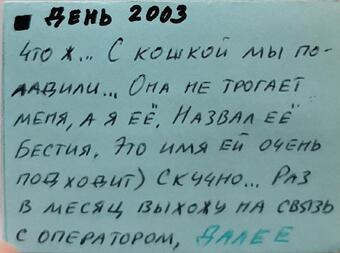 ■ ДЕНЬ 2003
ЧТО Ж... С КОШКОЙ МЫ ПО-
ЛАДИЛИ... ОНА НЕ ТРОГАЕТ
МЕНЯ, А Я ЕЁ. НАЗВАЛ ЕЁ
БЕСТИЯ. ЭТО ИМЯ ЕЙ ОЧЕНЬ
ПОДХОДИТ) СКУЧНО... РАЗ
В МЕСЯЦ ВЫХОЖУ НА СВЯЗЬ
С ОПЕРАТОРОМ, ДАЛЕЕ